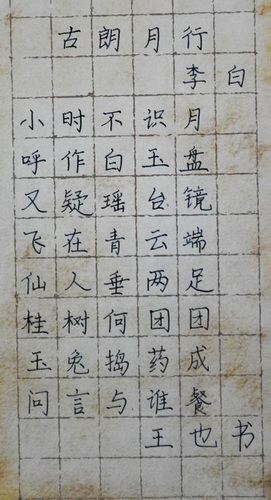 古朗月行
李白
小时不识月
呼作白玉盘
又疑瑶台镜
飞在青云端
仙人垂两足
桂树何团团
玉兔捣药成
问言与谁餐
王也书